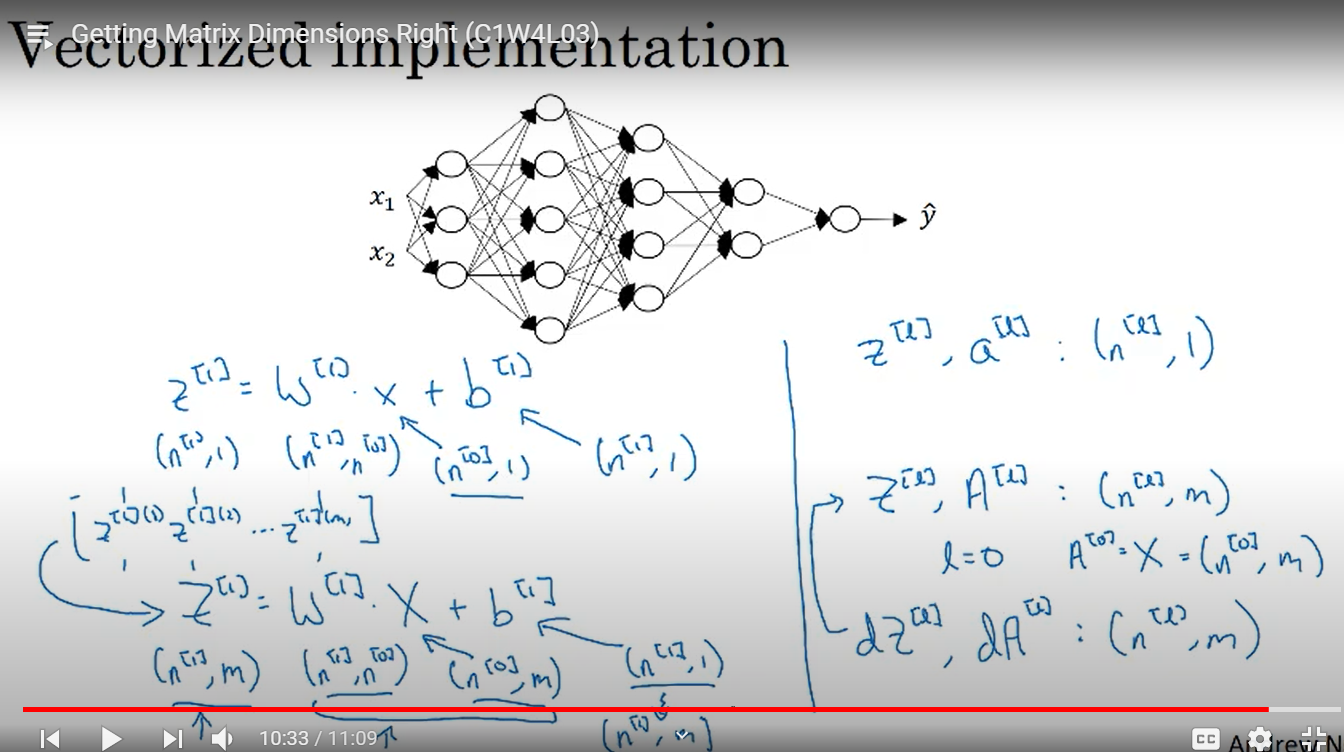 Getting Matrix Dimensions Right (C1W4L03)
Vectorized implementation
x₁
x₂
ŷ
z^[1] = W^[1] · x + b^[1]
(n^[1], 1) (n^[1], n^[0]) (n^[0], 1) (n^[1], 1)
[ z^[1](1) z^[1](2) ... z^[1](m) ]
Z^[1] = W^[1] · X + b^[1]
(n^[1], m) (n^[1], n^[0]) (n^[0], m) (n^[1], 1)
(n^[1], m)
z^[l], a^[l] : (n^[l], 1)
Z^[l], A^[l] : (n^[l], m)
l=0 A^[0] = X = (n^[0], m)
dZ^[l], dA^[l] : (n^[l], m)
10:33 / 11:09
CC
Andrew N